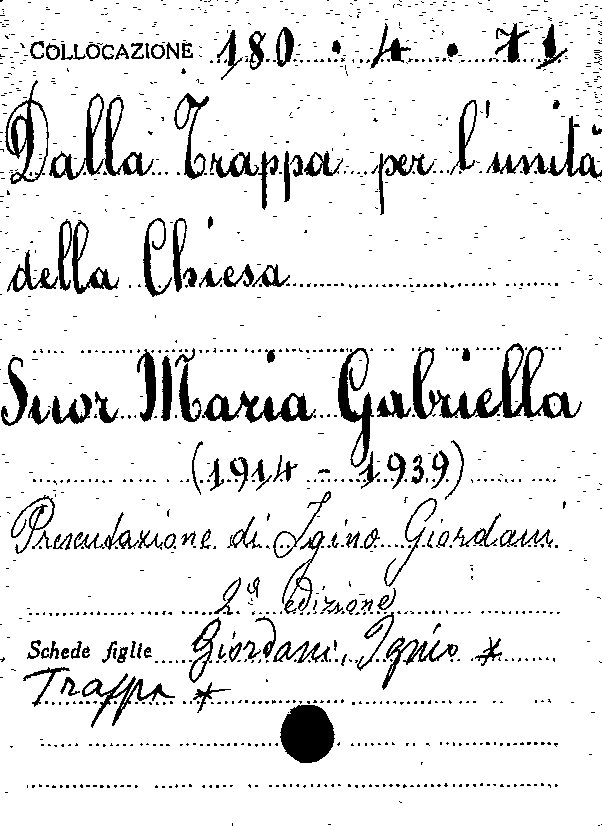 COLLOCAZIONE 180 . 4 . 71
Dalla Trappa per l'unità
della Chiesa
Suor Maria Gabriella
(1914 - 1939)
Presentazione di Igino Giordani
2ª edizione
Schede figlie Giordani, Ignio *
Trappa *